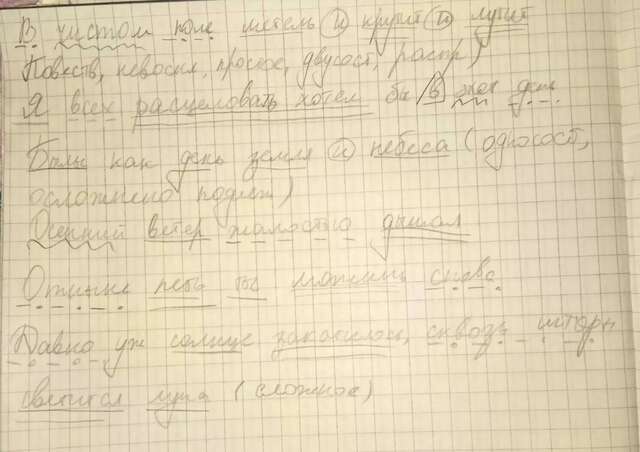 В чистом поле метель и крутит и мутит
Повеств, невоскл, простое, двусост, распр)
Я всех расцеловать хотел бы в этот день
Белы как день земля и небеса (односост,
осложнено подлеж)
Осенний ветер жалостью дышал
Отныне петь ты можешь снова
Давно уж солнце закатилось, сквозь шторы
светится луна (сложное)